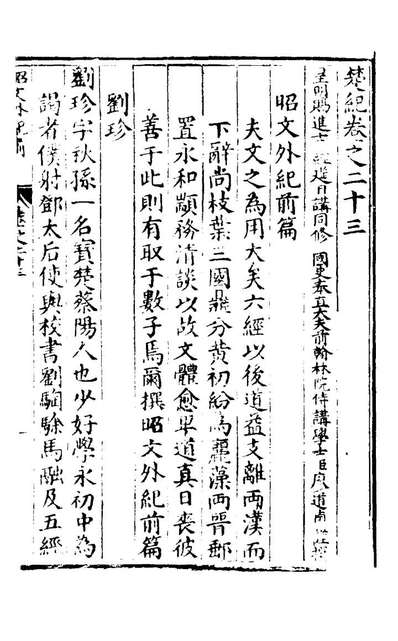 楚紀卷之二十三
皇明賜進士 經筵日講同修 國史奉直大夫前翰林院侍講學士臣廖道南
昭文外紀前篇
夫文之為用大矣六經以後道益支離兩漢而
下辭尚枝葉三國鼎分黃初紛為麗藻兩晉郵
置永和顓務清談以故文體愈卑道真日喪彼
善于此則有取于數子焉爾撰昭文外紀前篇
劉珍
劉珍字秋孫一名寶楚蔡陽人也少好學永初中為
謁者僕射鄧太后使與校書劉騊駼馬融及五經
昭文外紀前